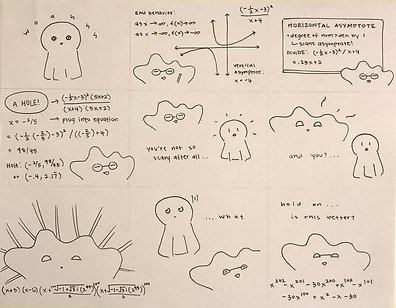 woahhh
END behavior:
as x → ∞, f(x) → ∞
as x → -∞, f(x) → -∞
(-½x-3)²
x+4
vertical
Asymptote:
x = -4
HORIZONTAL ASYMPTOTE
• degree of num > den by 1
↳ slant asymptote!
DIVIDE: (-½x-3)² / x+4
= .25x+2
A HOLE!
→ (-½x-3)² (5x+2)
(x+4) (5x+2)
x = -2/5 → plug into equation
= (-½(-⅖)-3)² / ((-⅖)+4)
= 98/45
Hole: (-2/5, 98/45)
or (-.4, 2.17)
you're not so
scary after all...
and you?...
(x+5) (x-6)
...what
hold on...
is this better?
x²⁰² - x²⁰¹ - 30x²⁰⁰ + x¹⁰² - x¹⁰¹
- 30x¹⁰⁰ + x² - x - 30